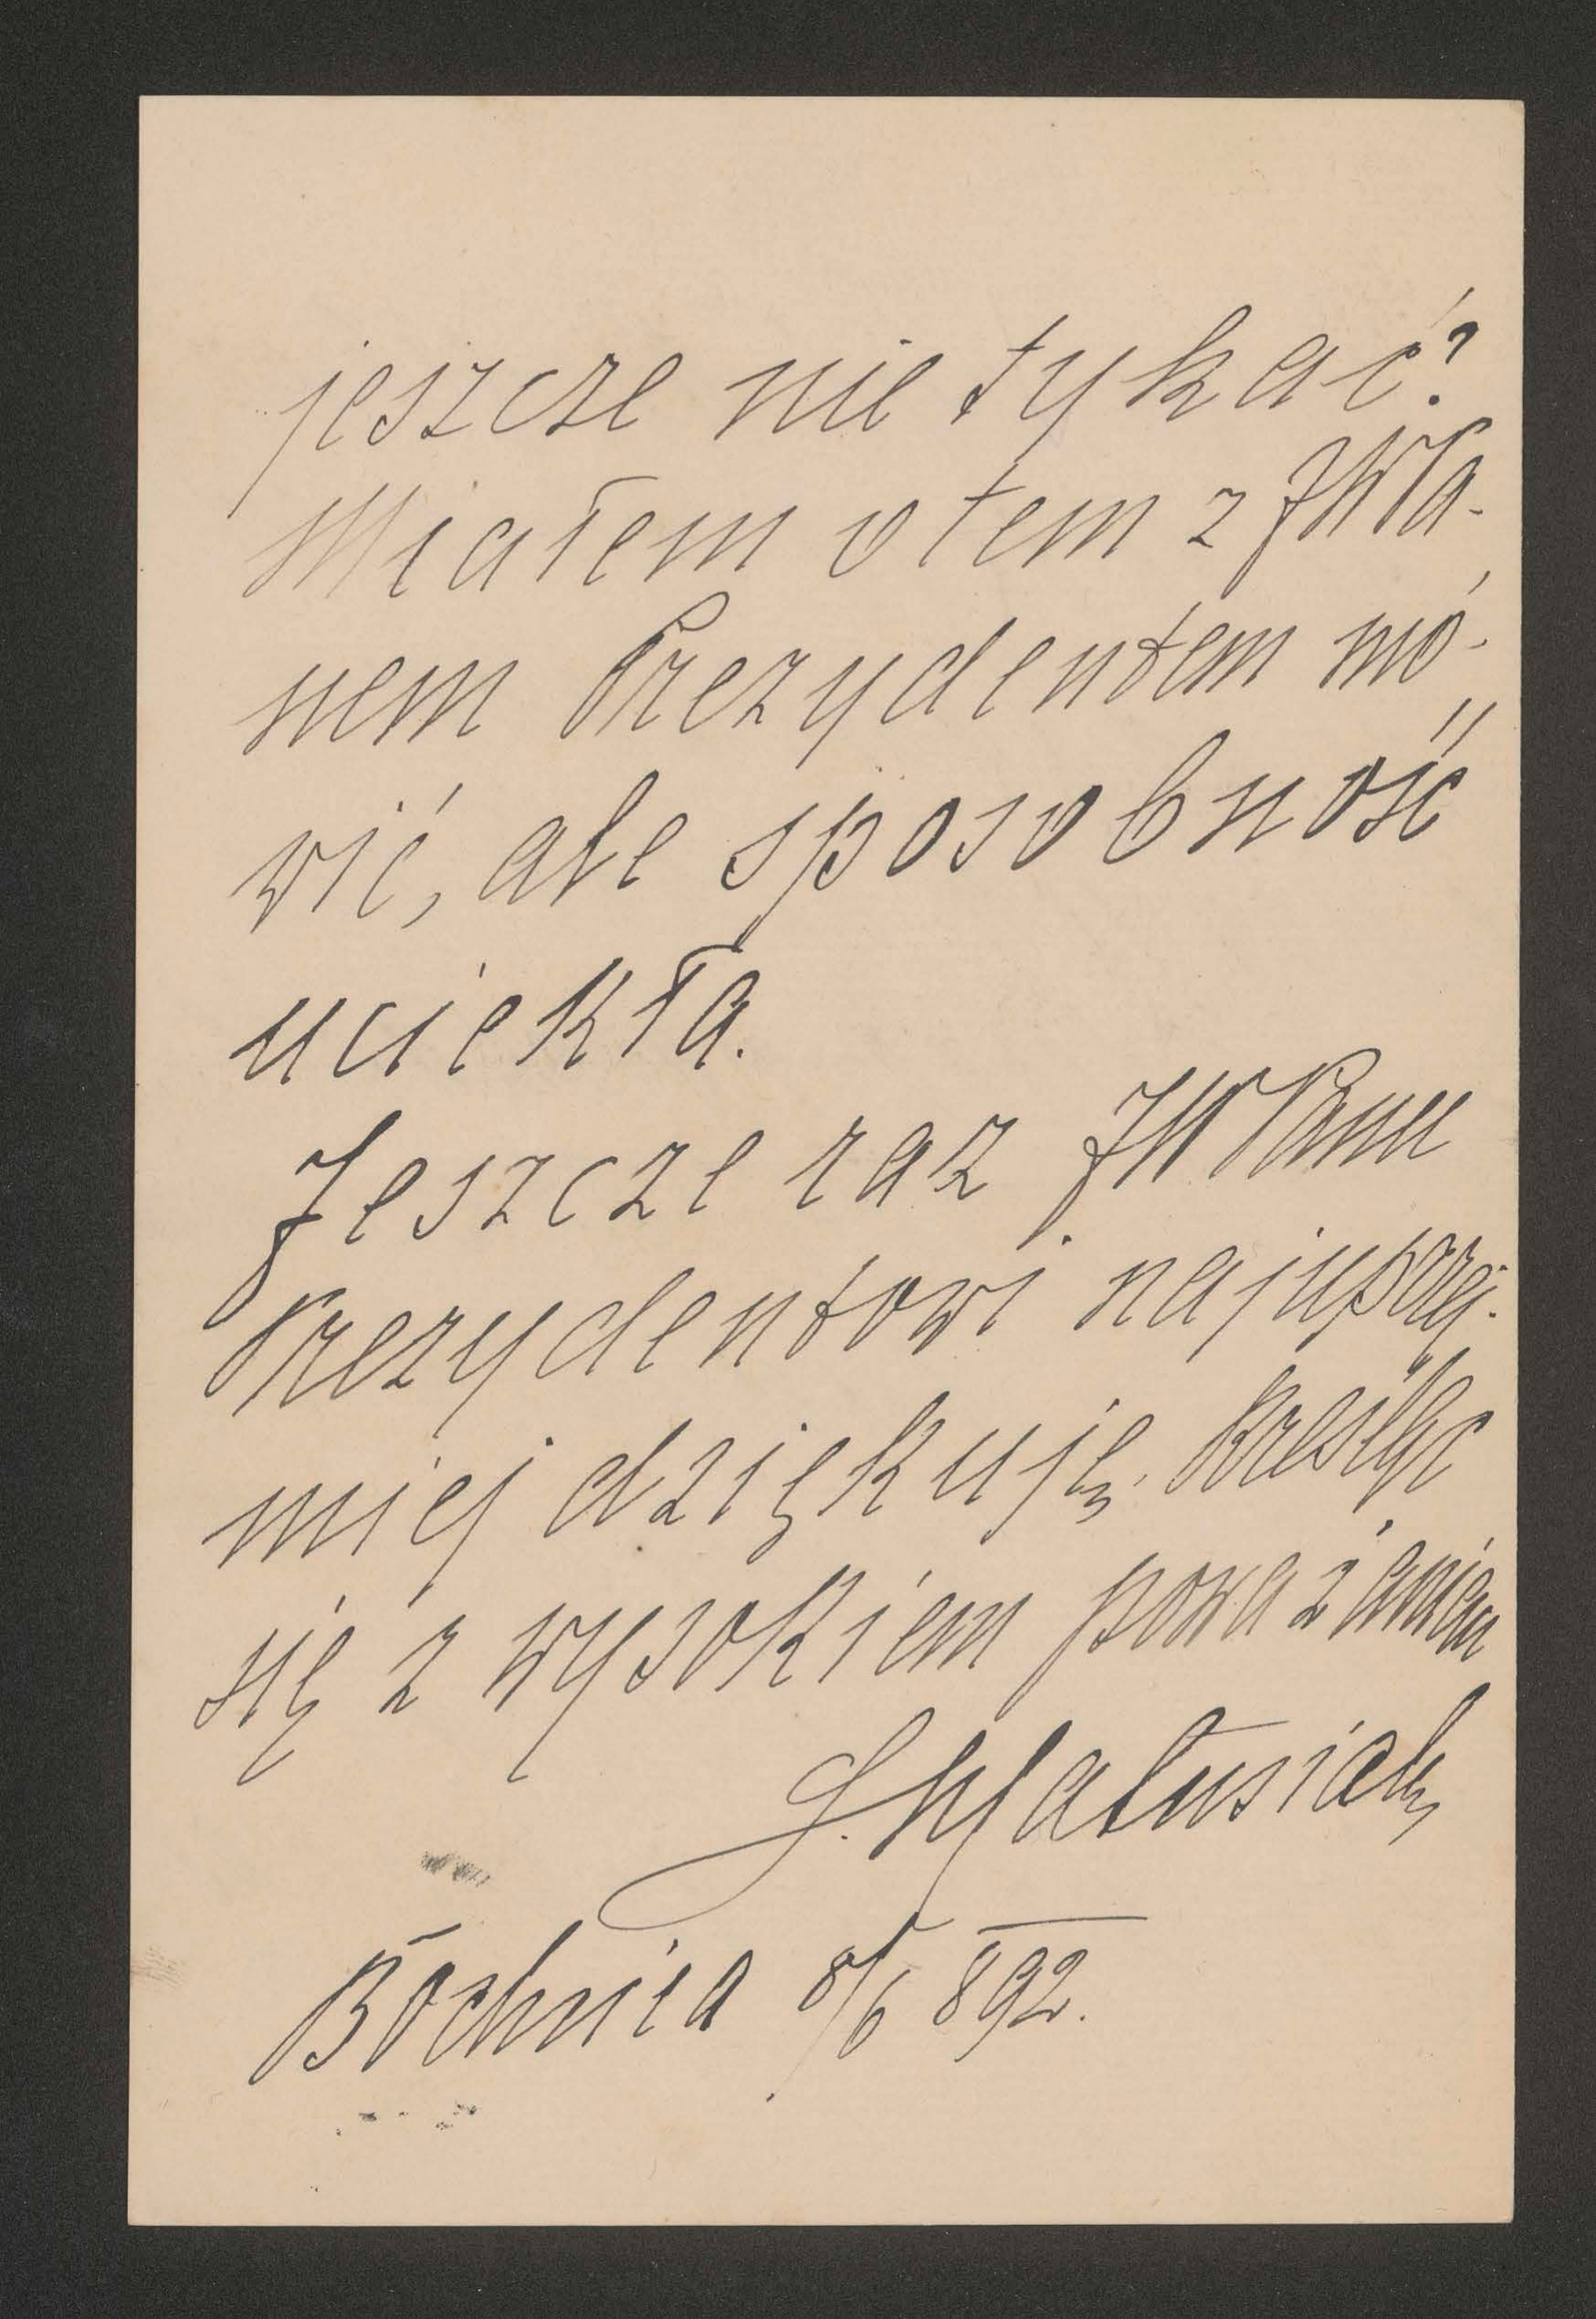 jeszcze nie tykać?
Miałem o tem z JWPa-
nem Prezydentem mó-
wić, ale sposobność
uciekła.
Jeszcze raz JWPanu
Prezydentowi najuprzej-
miej dziękuję. Kreśląc
się z wysokiem poważaniem
Bochnia 8/6 892.